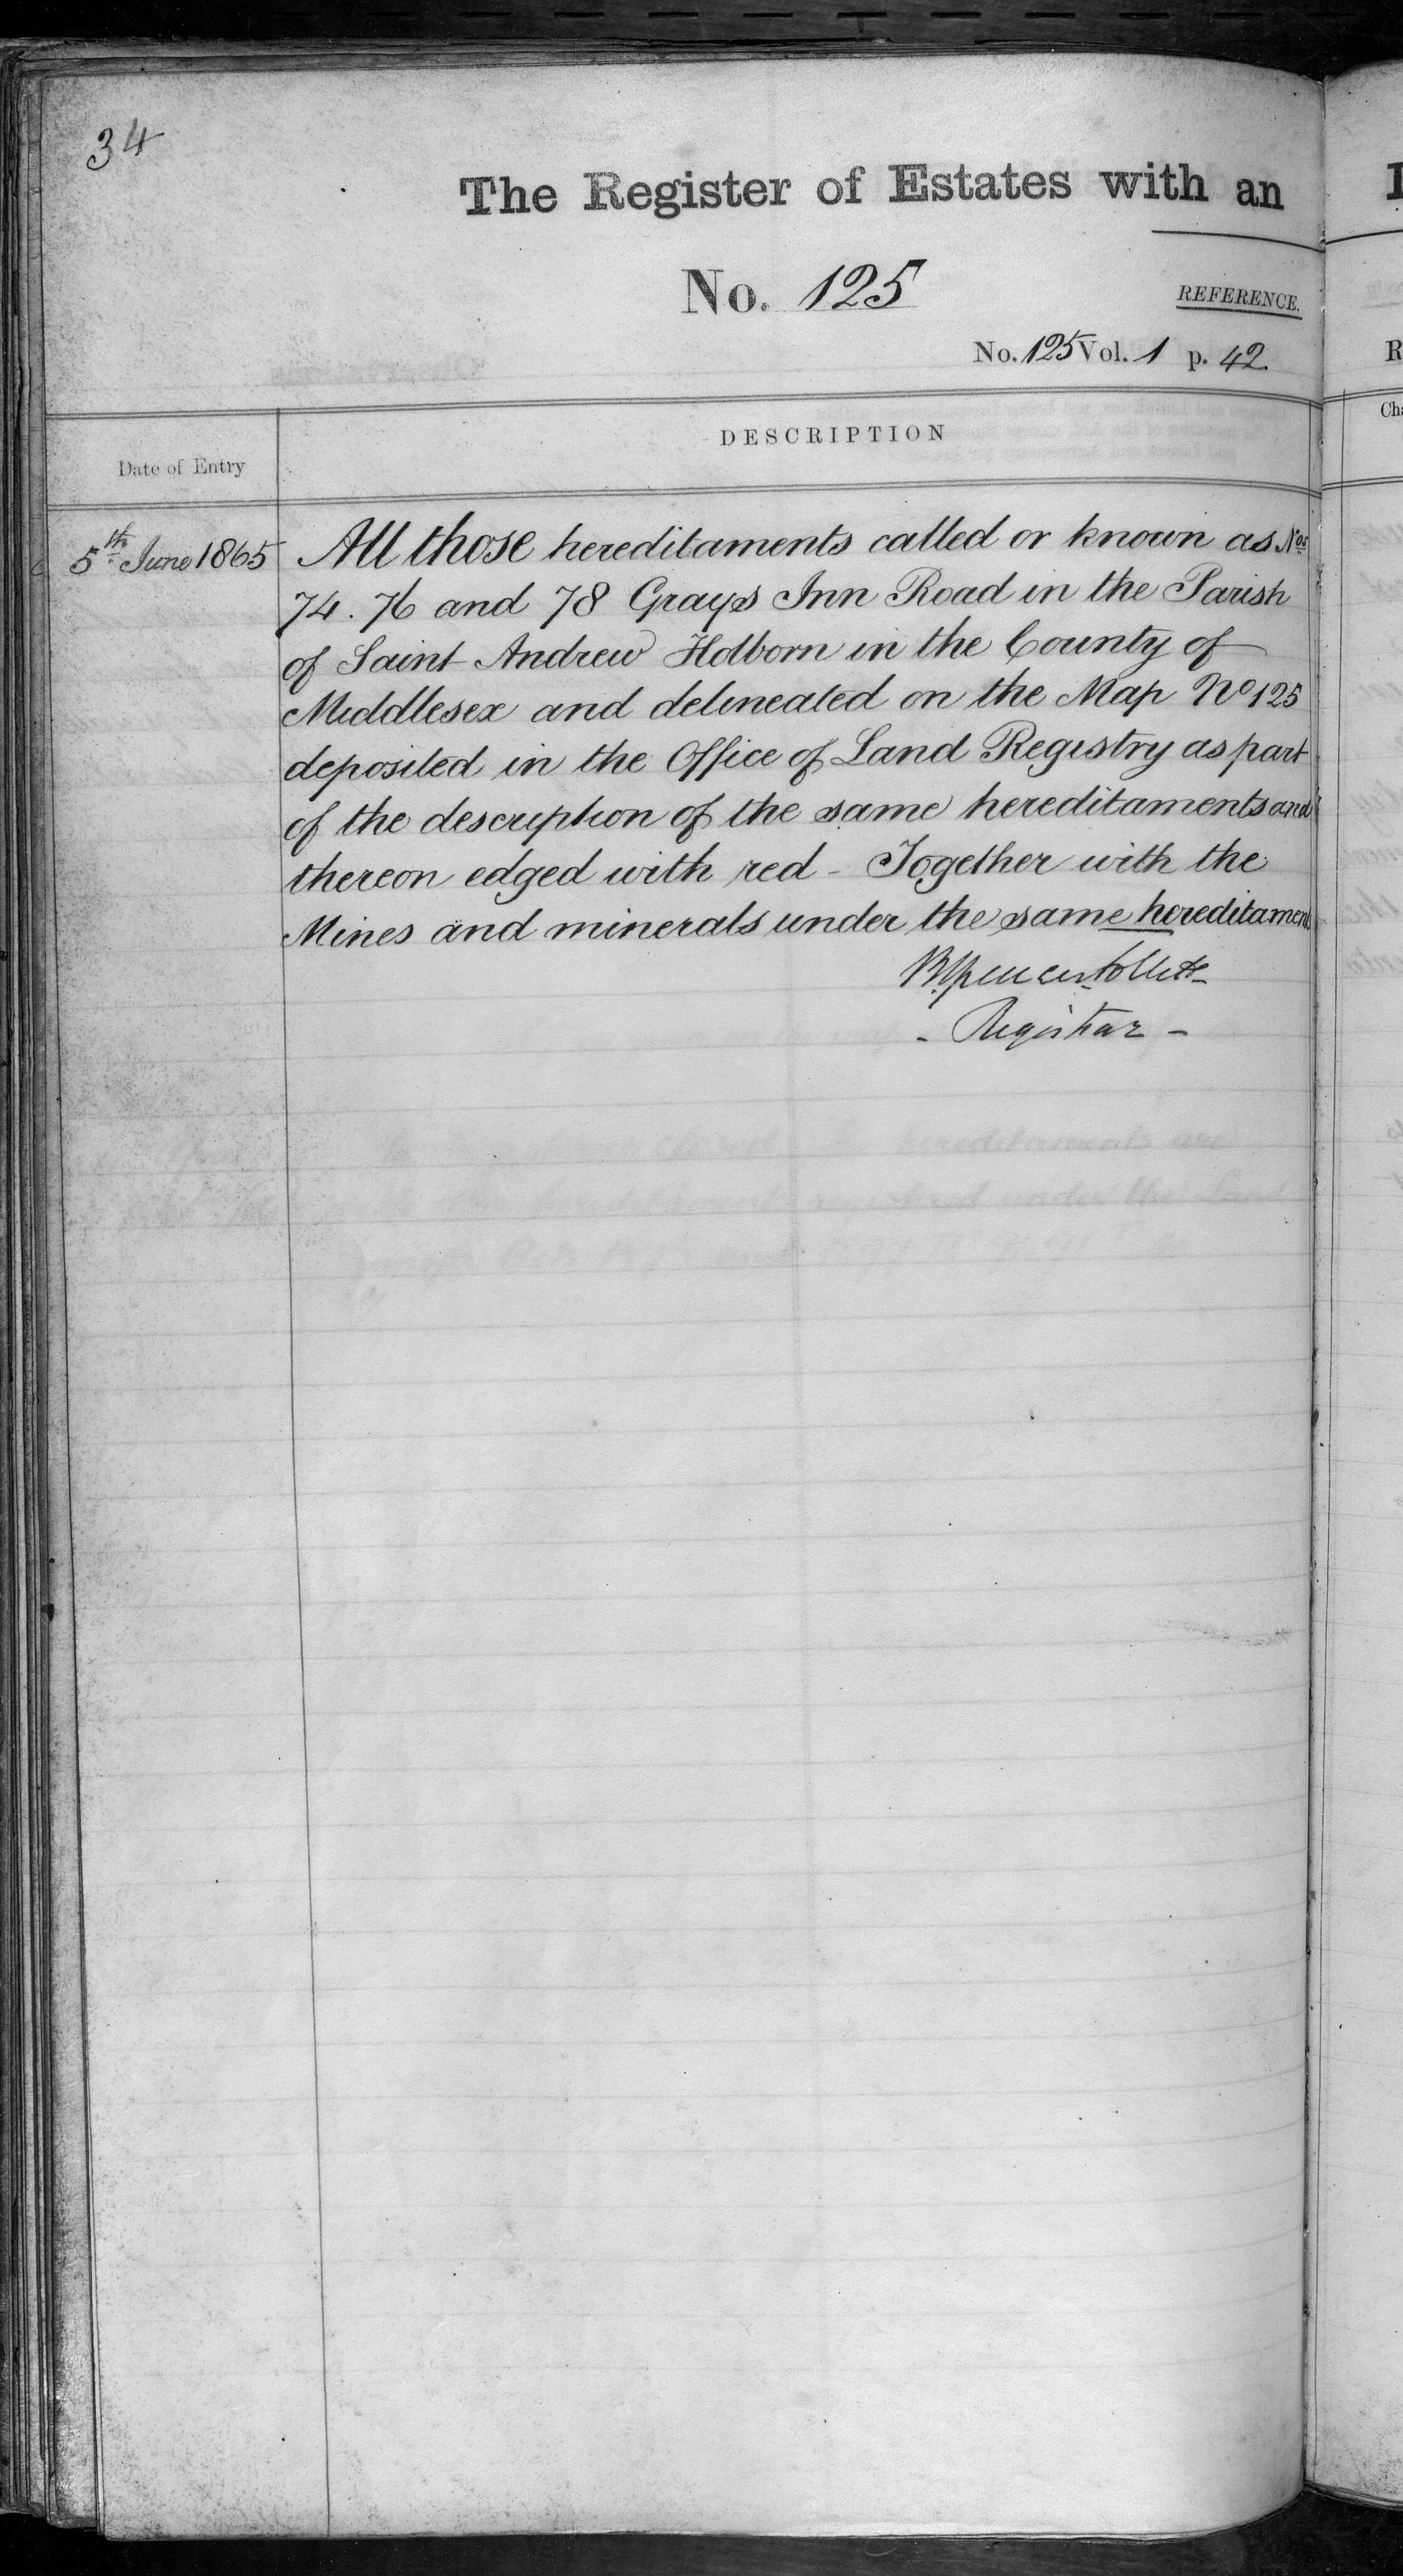 34
The Register of Estates with an
No. 125
REFERENCE.
No. 125 Vol. 1 p. 42.
DESCRIPTION
Date of Entry
5th June 1865
All those hereditaments called or known as Nos
74. 76 and 78 Grays Inn Road in the Parish
of Saint Andrew Holborn in the County of
Middlesex and delineated on the Map No 125
deposited in the Office of Land Registry as part
of the description of the same hereditaments and
thereon edged with red - Together with the
Mines and minerals under the same hereditaments
Spencer Follett
- Registrar -
R
Cha